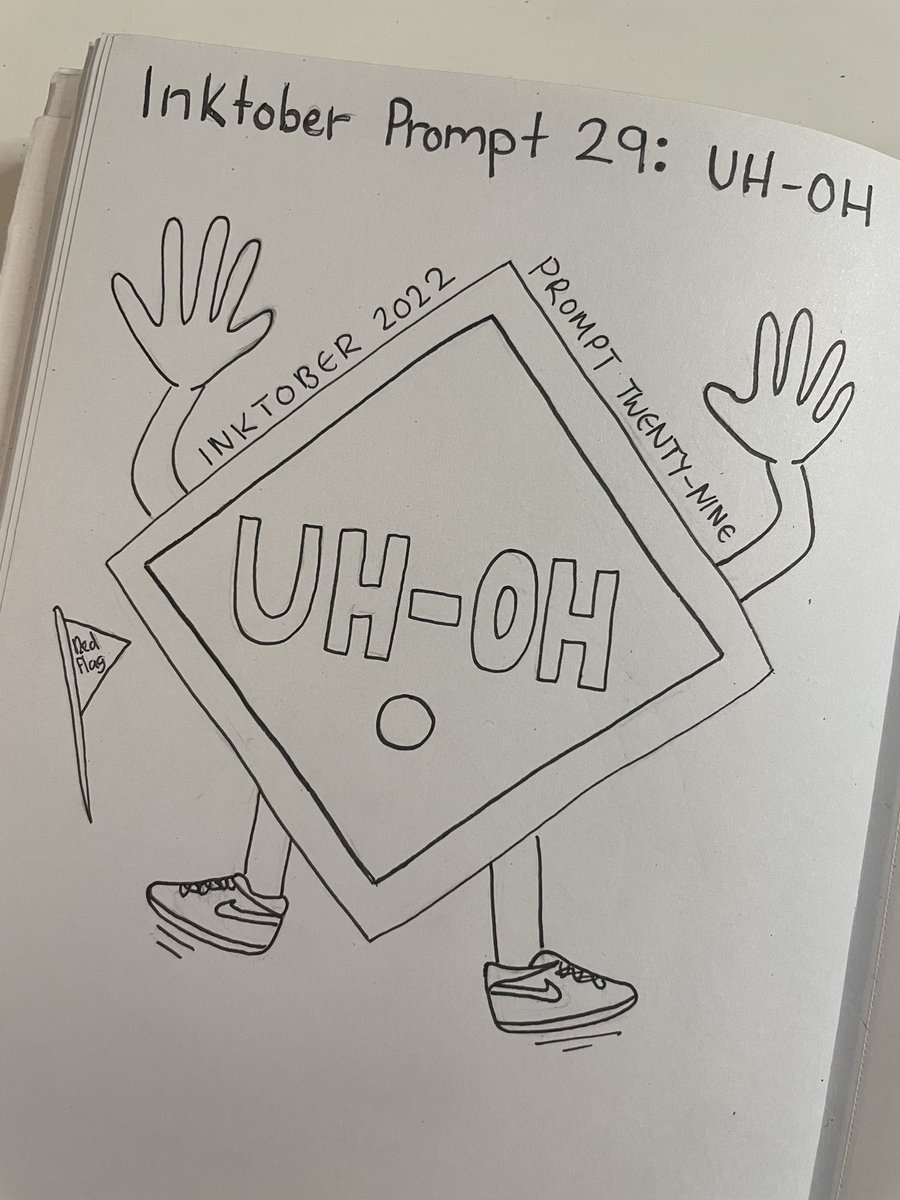 Inktober Prompt 29: UH-OH
INKTOBER 2022
PROMPT TWENTY-NINE
UH-OH
Red
Flag